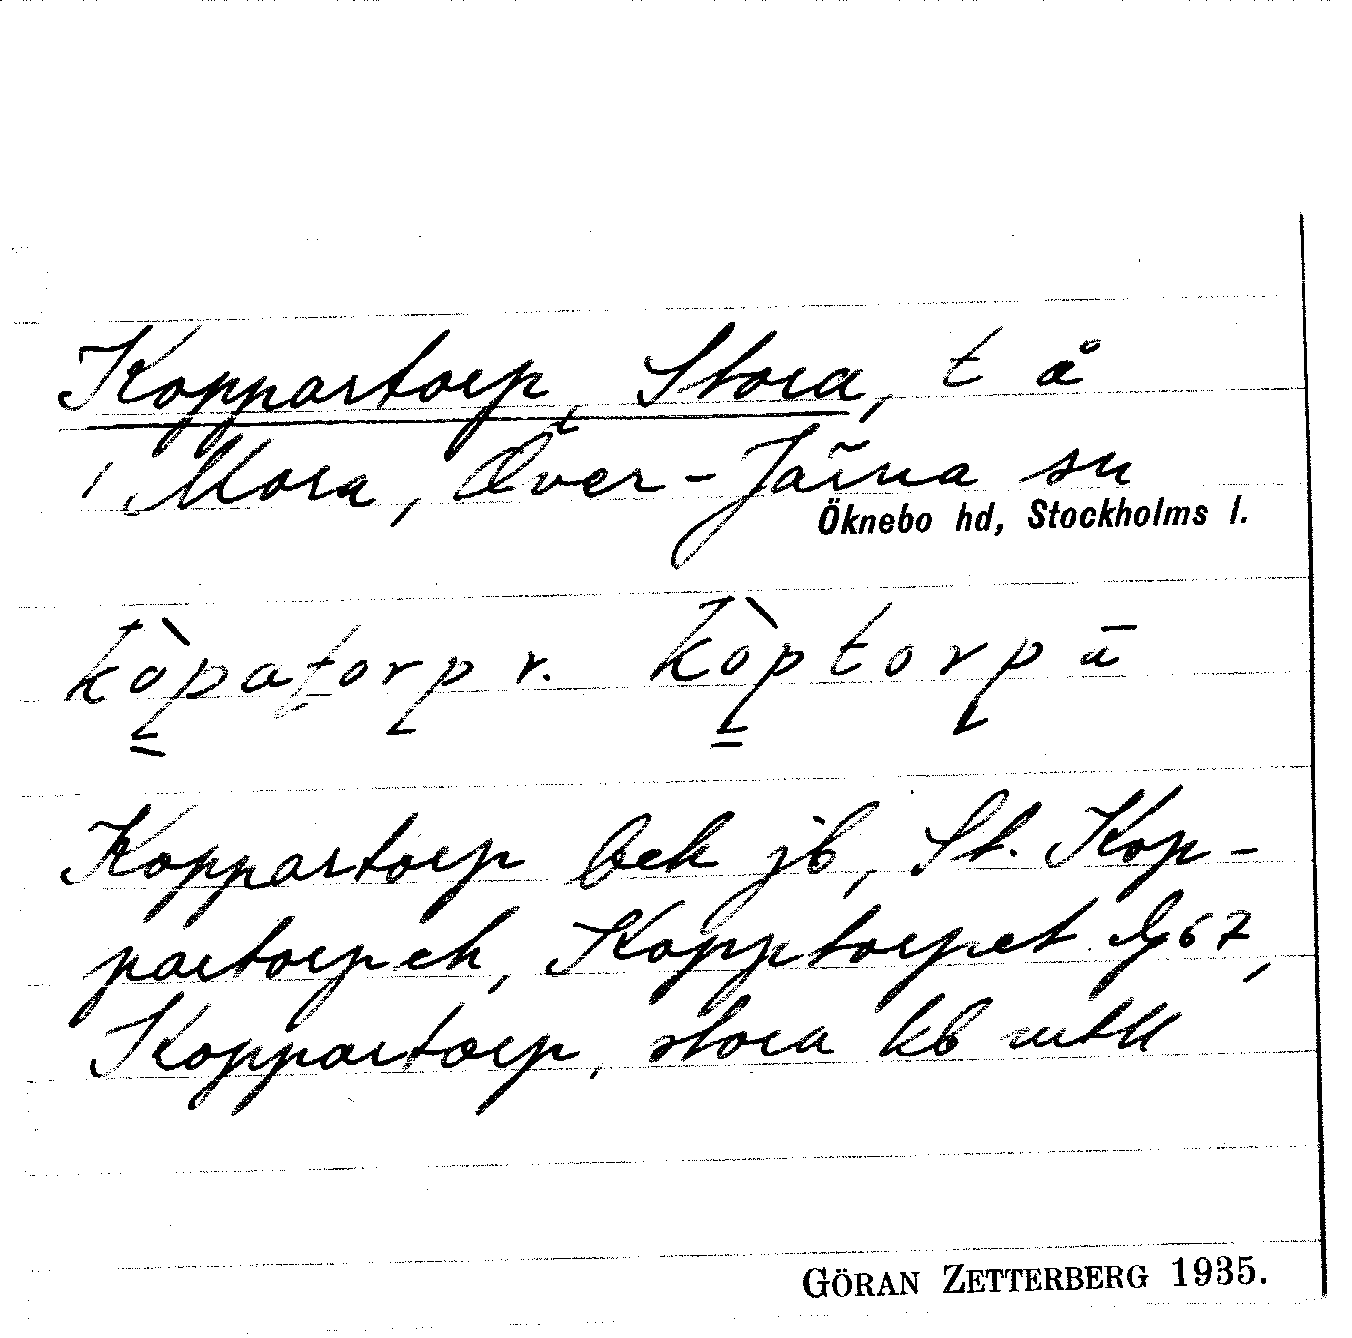 Koppartorp, Stora, t å
i Mora, Över-Järna sn
Öknebo hd, Stockholms l.
kòpatorp r. kòptorpä
Koppartorp bek jb, St. Kop-
partorp ek, Kopptorpet Gj 67,
Koppartorp, stora kb mtll
GÖRAN ZETTERBERG 1935.